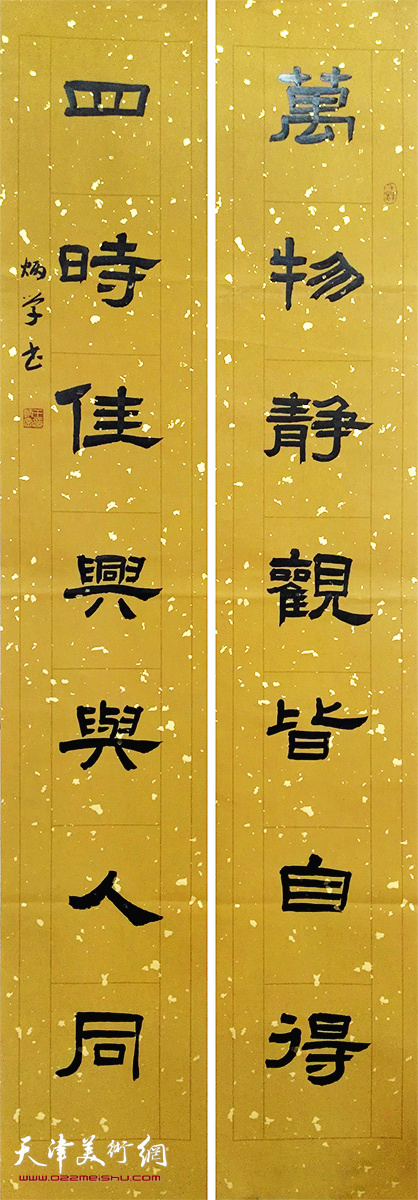 萬物静觀皆自得
四時佳興與人同
炳学书
天津美術網
www.022meishu.com